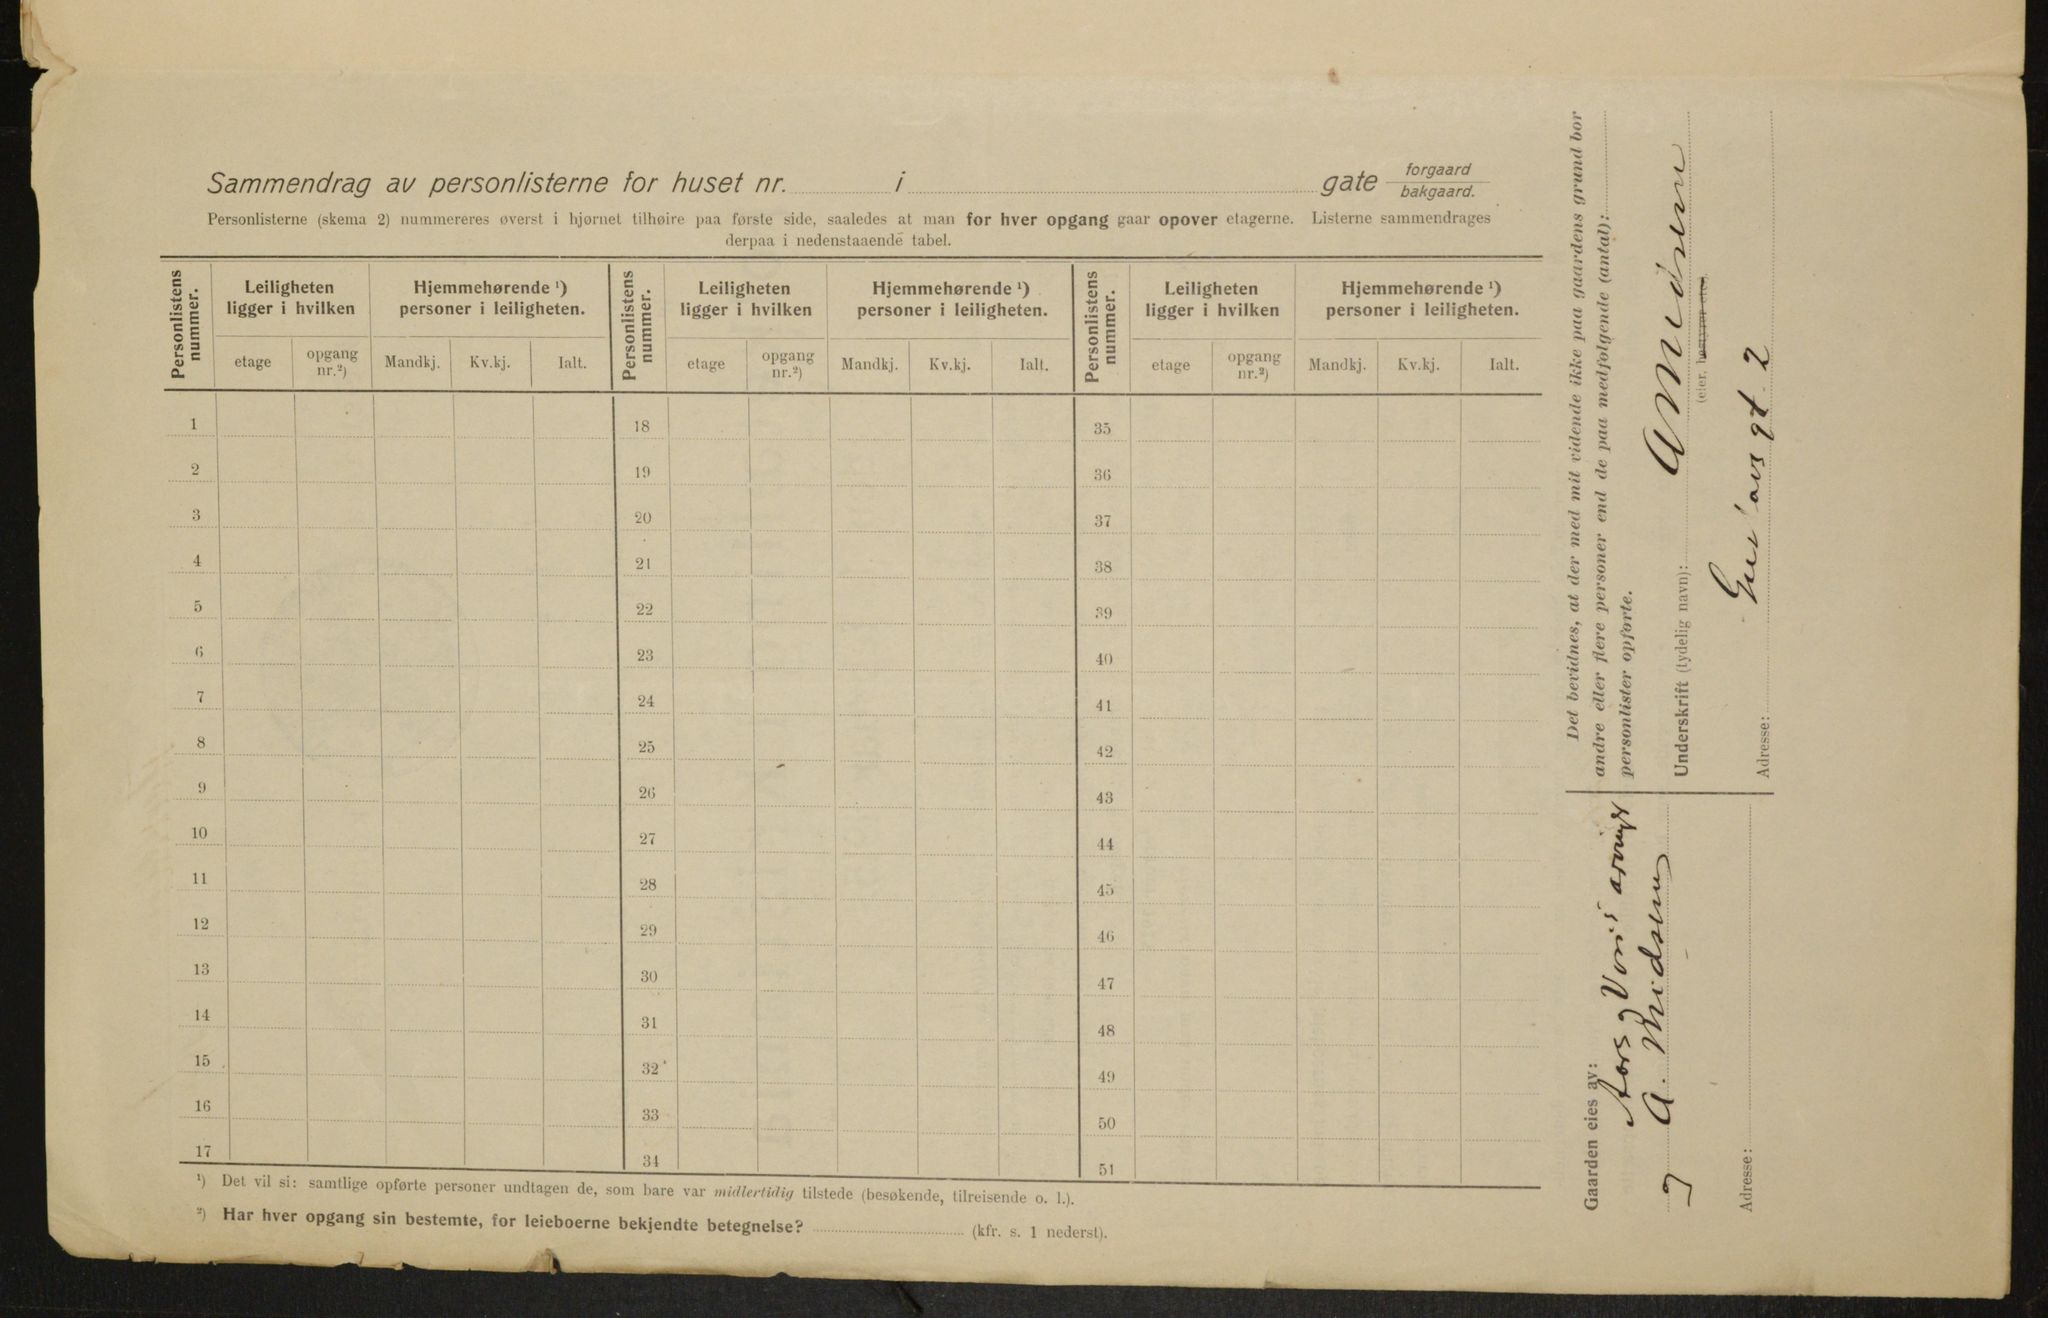 Sammendrag av personlisterne for huset nr. i gate forgaard
bakgaard.
Personlisterne (skema 2) nummereres øverst i hjørnet tilhøire paa første side, saaledes at man for hver opgang gaar opover etagerne. Listerne sammendrages
derpaa i nedenstaaende tabel.
Personlistens nummer. Leiligheten ligger i hvilken Hjemmehørende ¹) personer i leiligheten. Personlistens nummer. Leiligheten ligger i hvilken Hjemmehørende ¹) personer i leiligheten. Personlistens nummer. Leiligheten ligger i hvilken Hjemmehørende ¹) personer i leiligheten.
etage opgang nr.²) Mandkj. Kv.kj. Ialt. etage opgang nr.²) Mandkj. Kv.kj. Ialt. etage opgang nr.²) Mandkj. Kv.kj. Ialt.
1 18 35
2 19 36
3 20 37
4 21 38
5 22 39
6 23 40
7 24 41
8 25 42
9 26 43
10 27 44
11 28 45
12 29 46
13 30 47
14 31 48
15 32 49
16 33 50
17 34 51
¹) Det vil si: samtlige opførte personer undtagen de, som bare var midlertidig tilstede (besøkende, tilreisende o. l.).
²) Har hver opgang sin bestemte, for leieboerne bekjendte betegnelse? (kfr. s. 1 nederst).
Det bevidnes, at der med mit vidende ikke paa gaardens grund bor
andre eller flere personer end de paa medfølgende (antal):
personlister opførte.
Underskrift (tydelig navn): A Midsem
(eier, bestyrer etc.)
Adresse: gt. 2
Gaarden eies av:
A. Midsem
Adresse: